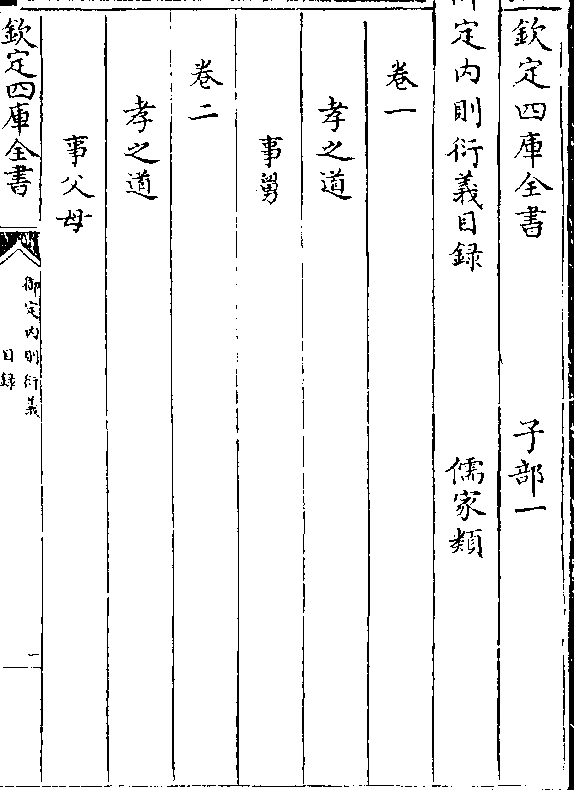 欽定四庫全書 子部一
御定內則衍義目録 儒家類
卷一
孝之道
事舅
卷二
孝之道
事父母
欽定四庫全書
御定內則衍義
目録
一